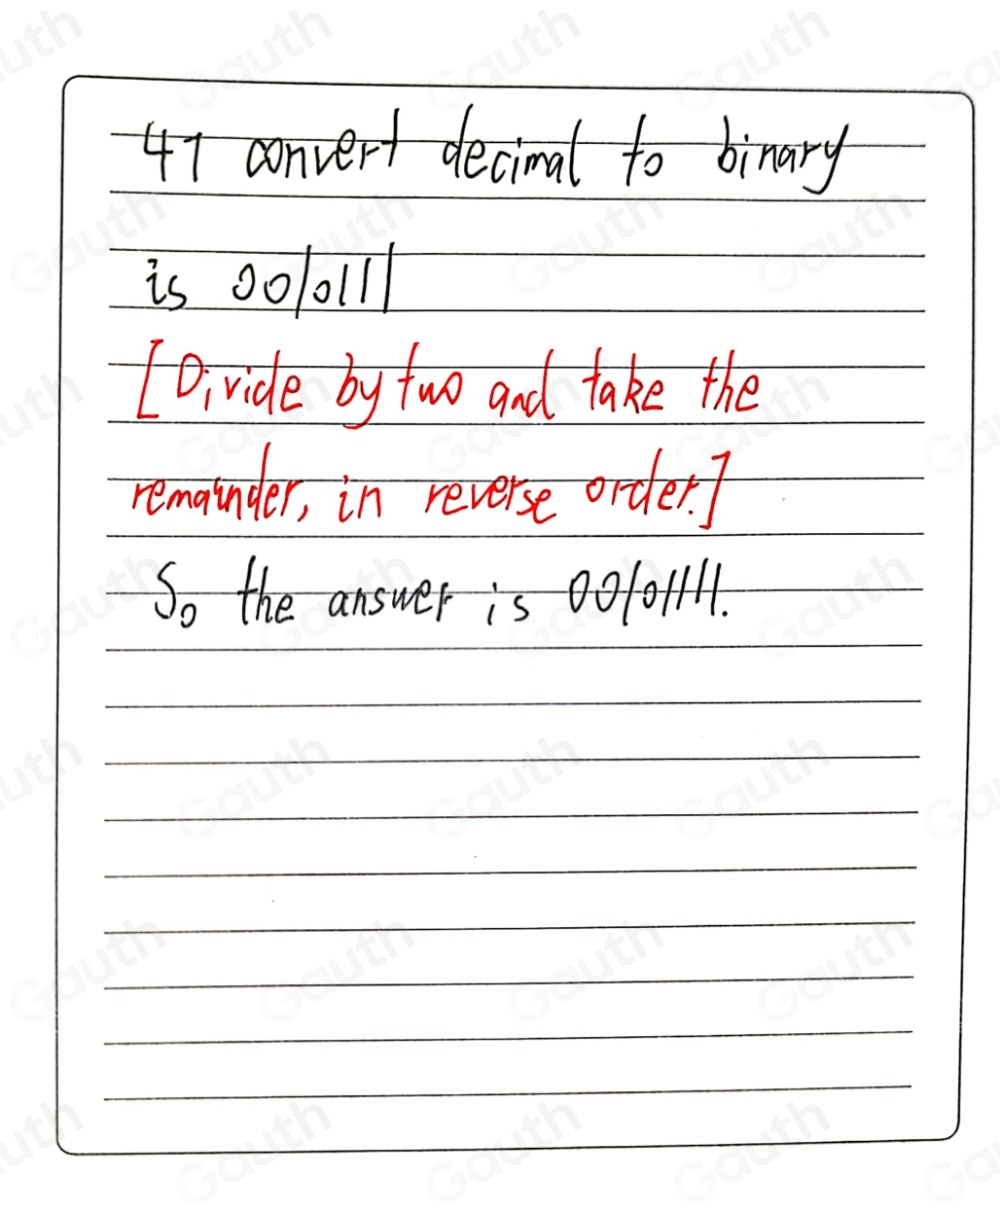 47 convert decimal to binary
is 00101111
[Divide by two and take the
remainder, in reverse order.]
So the answer is 00101111.
Gauth